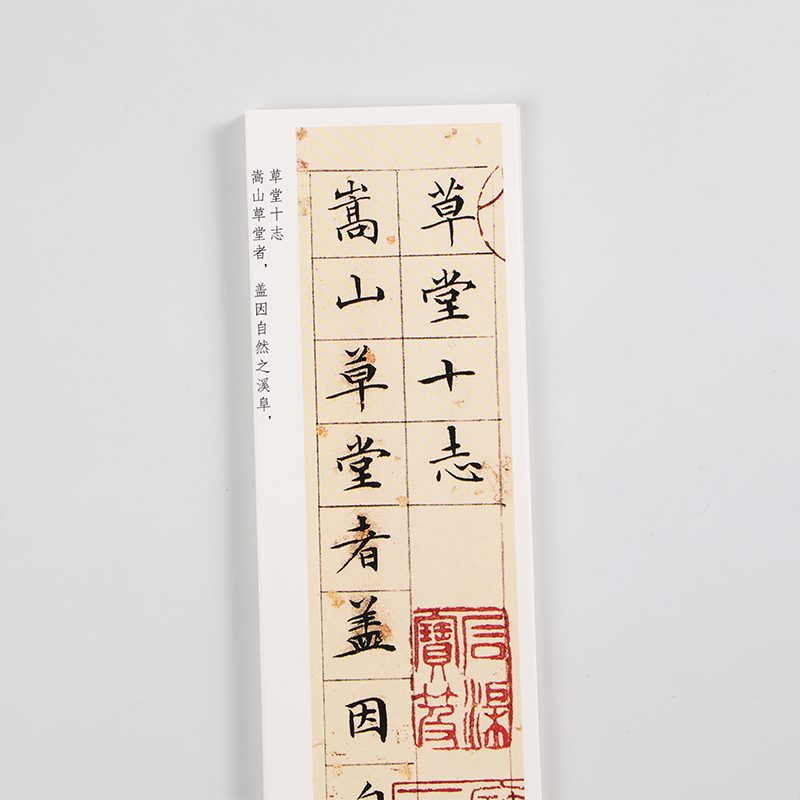 草堂十志
嵩山草堂者盖因自
草堂十志
嵩山草堂者，盖因自然之溪阜，